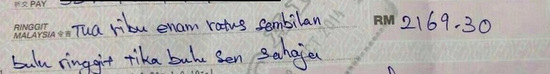 祈交 PAY
RINGGIT MALAYSIA 令吉 Tua ribu enam ratus sembilan RM 2169.30
bulu ringgit tika bulu sen sahaja